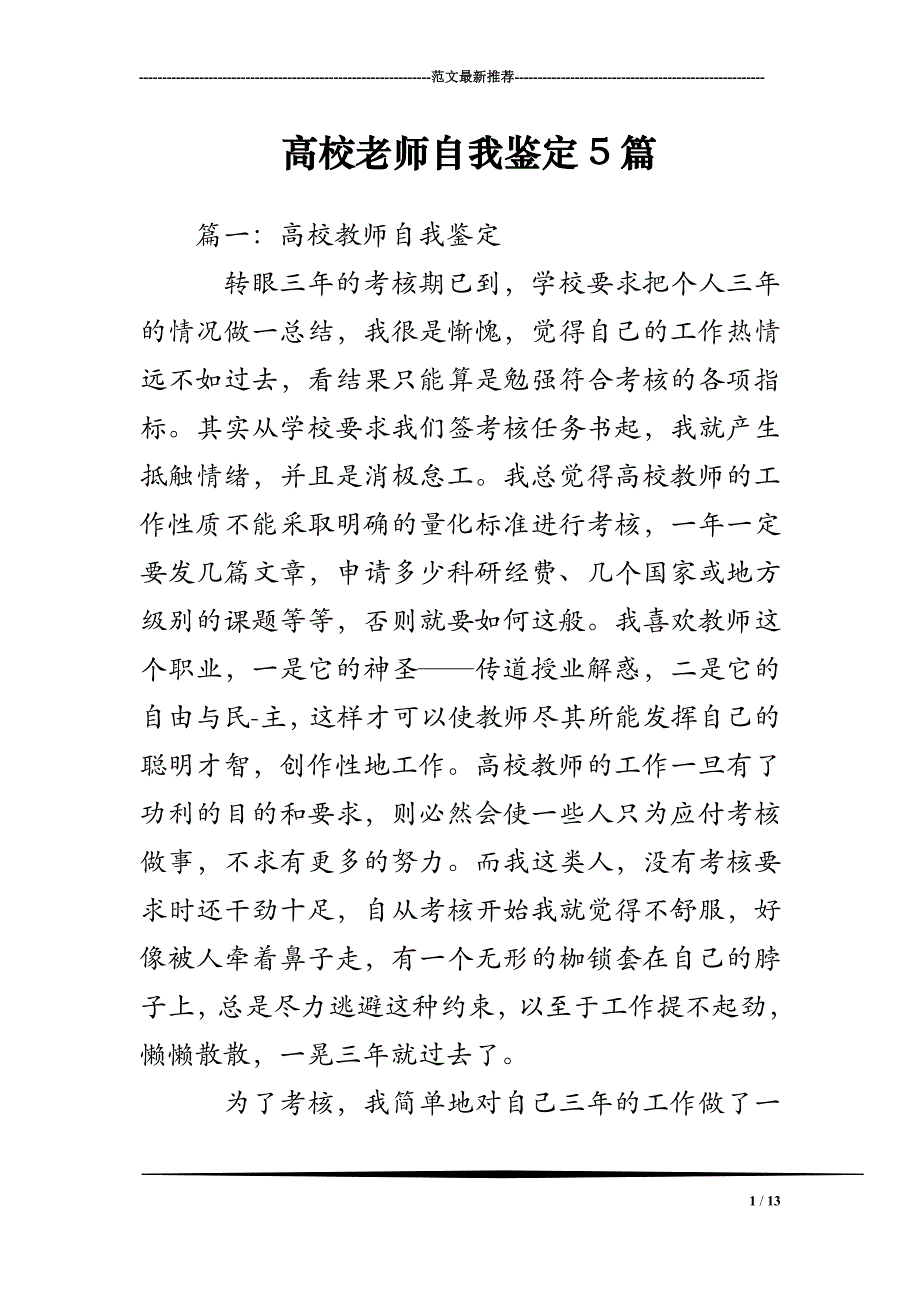 ---------------------------------------------------------------范文最新推荐------------------------------------------------------
高校老师自我鉴定5篇
篇一：高校教师自我鉴定
转眼三年的考核期已到，学校要求把个人三年
的情况做一总结，我很是惭愧，觉得自己的工作热情
远不如过去，看结果只能算是勉强符合考核的各项指
标。其实从学校要求我们签考核任务书起，我就产生
抵触情绪，并且是消极怠工。我总觉得高校教师的工
作性质不能采取明确的量化标准进行考核，一年一定
要发几篇文章，申请多少科研经费、几个国家或地方
级别的课题等等，否则就要如何这般。我喜欢教师这
个职业，一是它的神圣——传道授业解惑，二是它的
自由与民-主，这样才可以使教师尽其所能发挥自己的
聪明才智，创作性地工作。高校教师的工作一旦有了
功利的目的和要求，则必然会使一些人只为应付考核
做事，不求有更多的努力。而我这类人，没有考核要
求时还干劲十足，自从考核开始我就觉得不舒服，好
像被人牵着鼻子走，有一个无形的枷锁套在自己的脖
子上，总是尽力逃避这种约束，以至于工作提不起劲，
懒懒散散，一晃三年就过去了。
为了考核，我简单地对自己三年的工作做了一
1 / 13